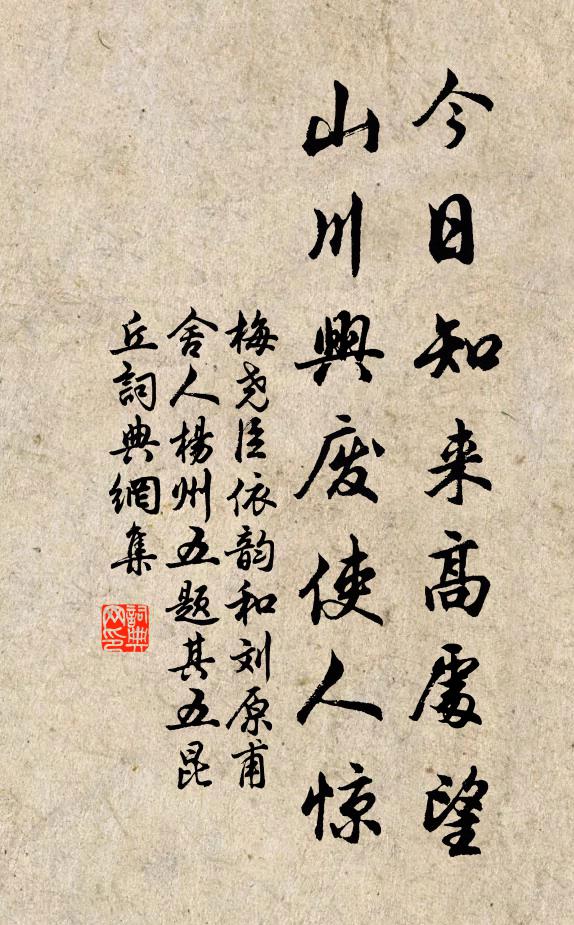 今日知来高處望
山川興廢使人惊
梅尧臣依韵和刘原甫
舍人楊州五题其五昆
丘詞典網集
詞典网印